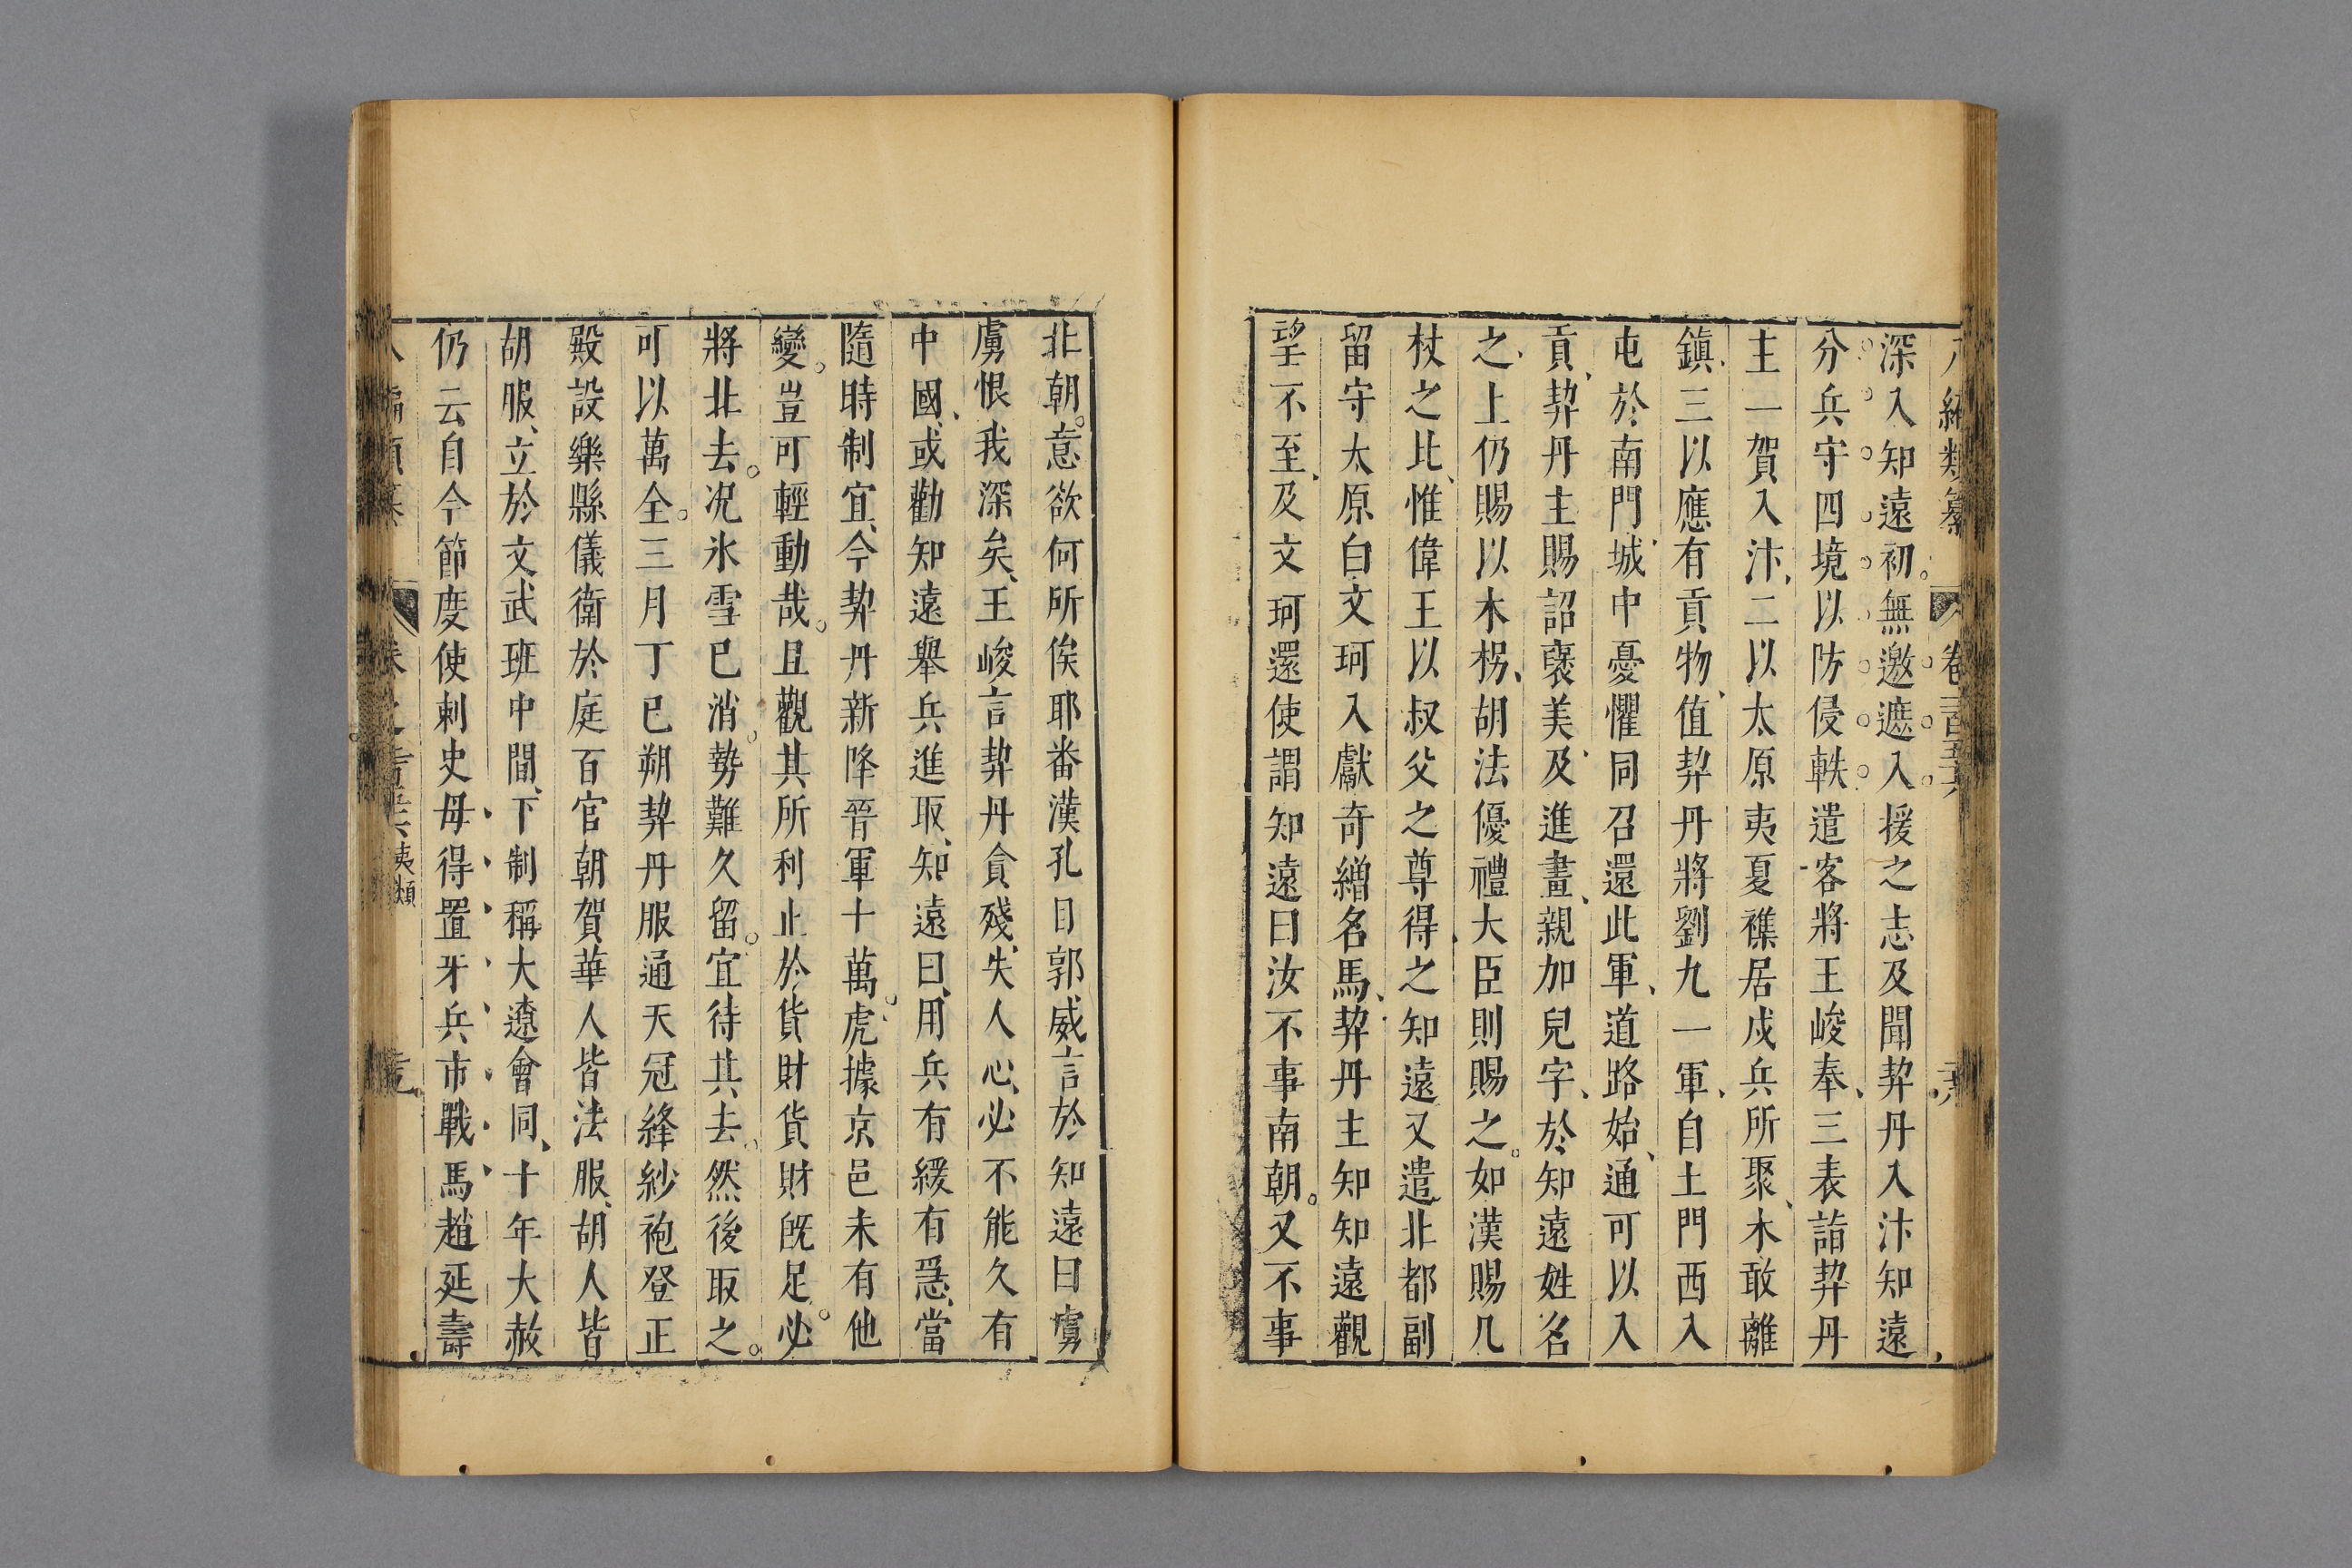 編類纂 卷二百五十六
深入知遠初。無邀遮入援之志及聞契丹入汴知遠
分兵守四境以防侵軼遣客將王峻奉、三表詣契丹
主一賀入汴、二以太原夷夏襍居戍兵所聚、木敢離
鎮、三以應有貢物、值契丹將劉九一軍、自土門西入
屯於南門、城中憂懼同召還此軍、道路始、通可以入
貢、契丹主賜詔褒美、及進畫、親加兒字、於知遠姓名
之、上仍賜以木柺、胡法優禮大臣則賜之。如漢賜几
杖之比、惟偉王以叔父之尊得、之知遠又遣北都副
留守太原白文珂入獻奇繒名馬、契丹主知知遠觀
望不至、及文珂還使謂知遠曰汝不事南朝。又不事
北朝。意欲何所俟耶番漢孔目郭威言於知遠曰虜
虜恨我深矣、王峻言契丹貪殘、失人心、必不能久有
中國、或勸知遠舉兵進取、知遠曰、用兵有緩有急、當
隨時制宜、今契丹新降晉軍十萬、虎據京邑未有他
變。豈可輕動哉。且觀其所利止於貨財貨財既足。必
將北去。况氷雪已消。勢難久留。宜待其去、然後取之。
可以萬全。三月丁巳朔契丹服通天冠絳紗袍登正
殿設樂縣儀衛於庭百官朝賀華人皆法服、胡人皆
胡服、立於文武班中間、下制稱大遼會同、十年大赦
仍云自今節度使刺史毋得置牙兵市戰馬趙延壽
夷類